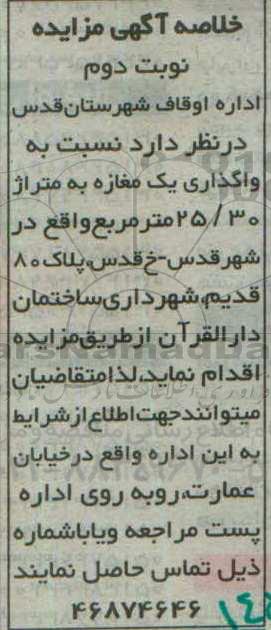 خلاصه آگهی مزایده
نوبت دوم
اداره اوقاف شهرستان قدس
درنظر دارد نسبت به
واگذاری یک مغازه به متراژ
۲۵/۳۰ مترمربع واقع در
شهرقدس-خ قدس،پلاک ۸۰
قدیم،شهرداری،ساختمان
دارالقرآن ازطریق مزایده
اقدام نماید،لذا متقاضیان
میتوانند جهت اطلاع از شرایط
به این اداره واقع در خیابان
عمارت،روبه روی اداره
پست مراجعه ویا باشماره
ذیل تماس حاصل نمایند
۴۶۸۷۴۶۴۶